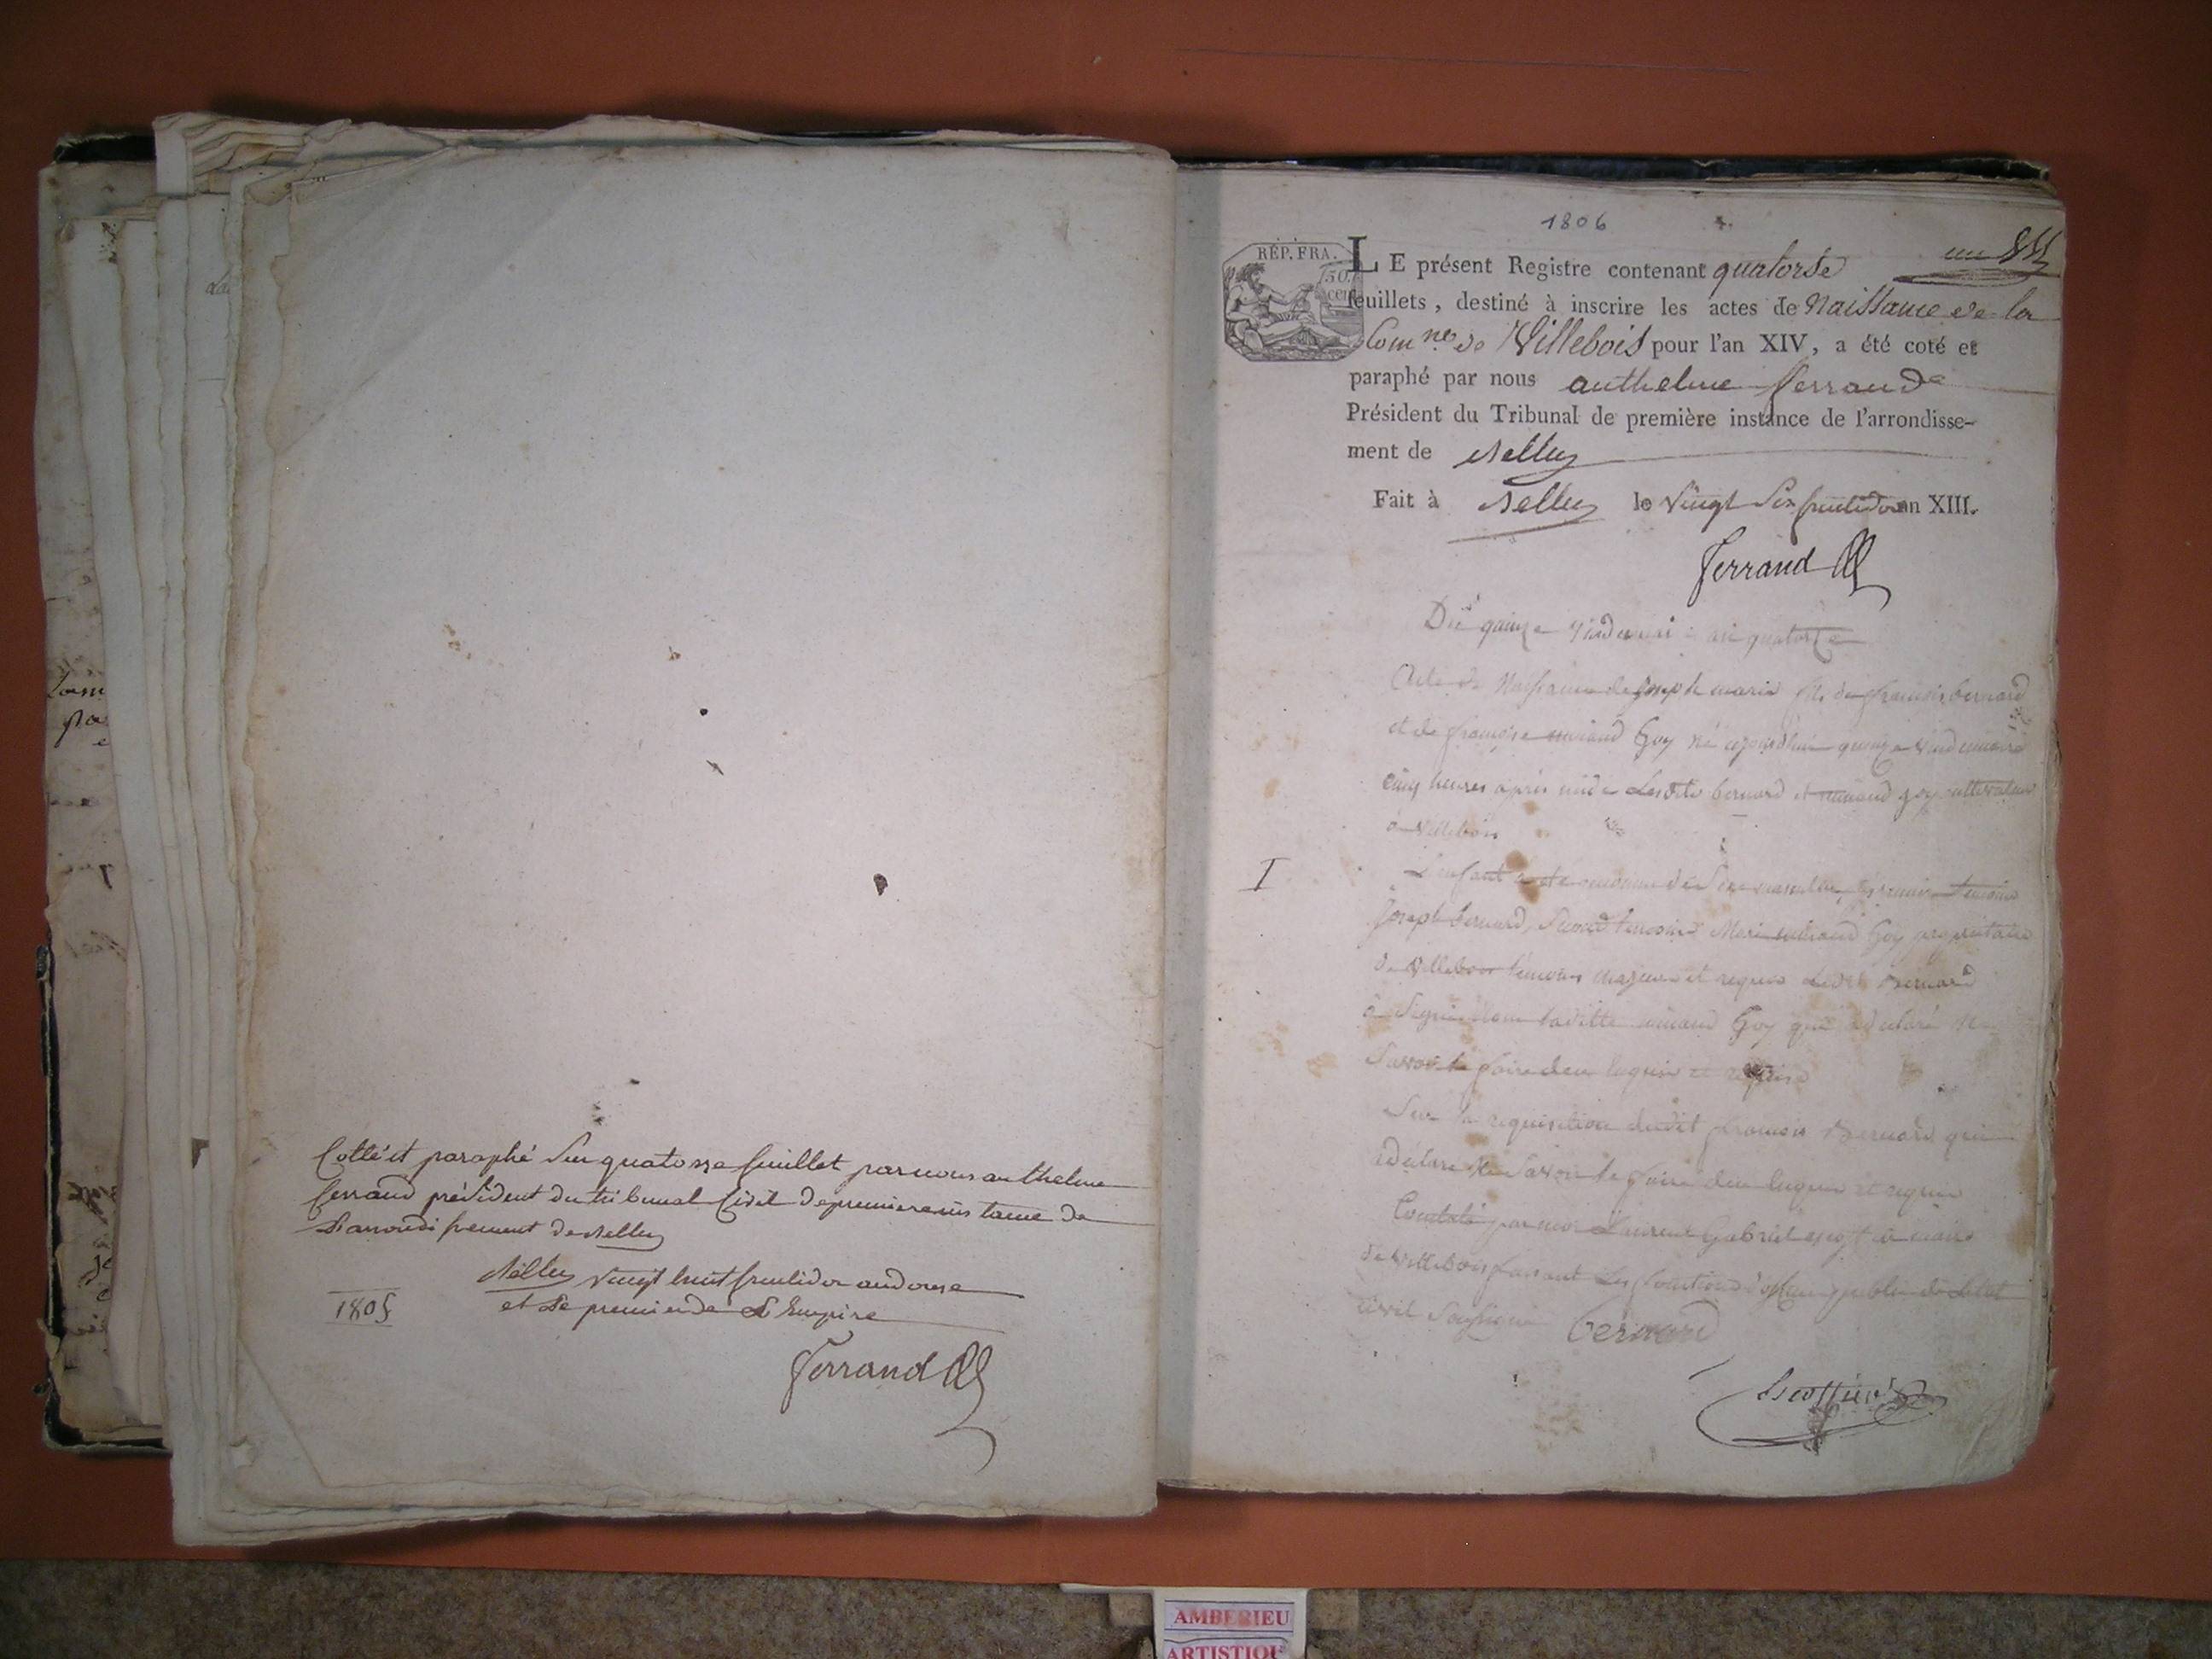 Cotté et paraphé sur quatorze feuillet par nous anthelme
ferrand président du tribunal Civil de premiere instance de
L'arrondissement de Belley
Belley vingt huit fructidor an douze
et Le premier de L'Empire
1805
Ferrand
1806
RÉP. FRA.
50 cen
un
LE présent Registre contenant quatorse
feuillets, destiné à inscrire les actes de Naissance de la
Comne de Villebois pour l'an XIV, a été coté et
paraphé par nous anthelme ferrand
Président du Tribunal de première instance de l'arrondisse-
ment de Belley
Fait à Belley le vingt Six fructidor an XIII.
Ferrand
Du quinze vindemiaire an quatorze
Acte de Naissance de Joseph marie fils de francois bernard
et de françoise Goy né aujourdhui quinze vindemiaire
cinq heures après midi Lesdits bernard et goy cultivateur
a villebois
I
L'enfant a été reconnu de Sexe masculin, premier temoin
Joseph bernard, Second temoin Marie Goy propriétaire
de villebois temoins majeurs et requis Ledit Bernard
à Signé non laditte Goy qui a declaré Ne
Savoir le faire de ce enquis et requis
Sur la requisition dudit francois Bernard qui
a declaré Ne Savoir le faire de ce enquis et requis
Constaté par moi Laurent Gabriel maire
de villebois faisant Les fonctions d'officier public de L'etat
civil Soussigné bernard
Escoffier
AMBERIEU
ARTISTIQU